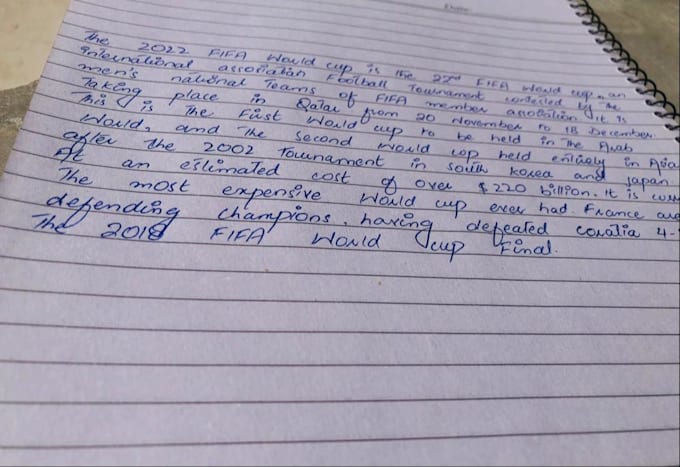 The 2022 FIFA World cup is the 22nd FIFA World cup, an
international association Football Tournament contested by The
men's national Teams of FIFA member association. It is
Taking place in Qatar from 20 November to 18 December.
This is The First World cup to be held in The Arab
World, and The second World cup held entirely in Asia
after The 2002 Tournament in south Korea and Japan
At an estimated cost of over $220 billion. It is
The most expensive World cup ever had. France are
defending champions, having defeated coratia 4-
The 2018 FIFA World cup Final.